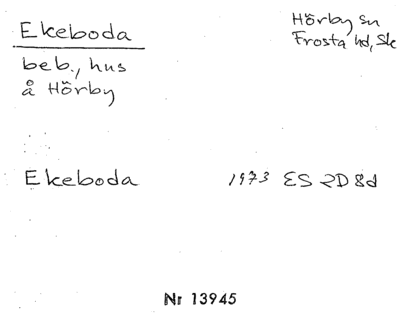 Ekeboda
Hörby sn
Frosta hd, Sk
beb., hus
å Hörby
Ekeboda 1973 ES 2D8d
Nr 13945